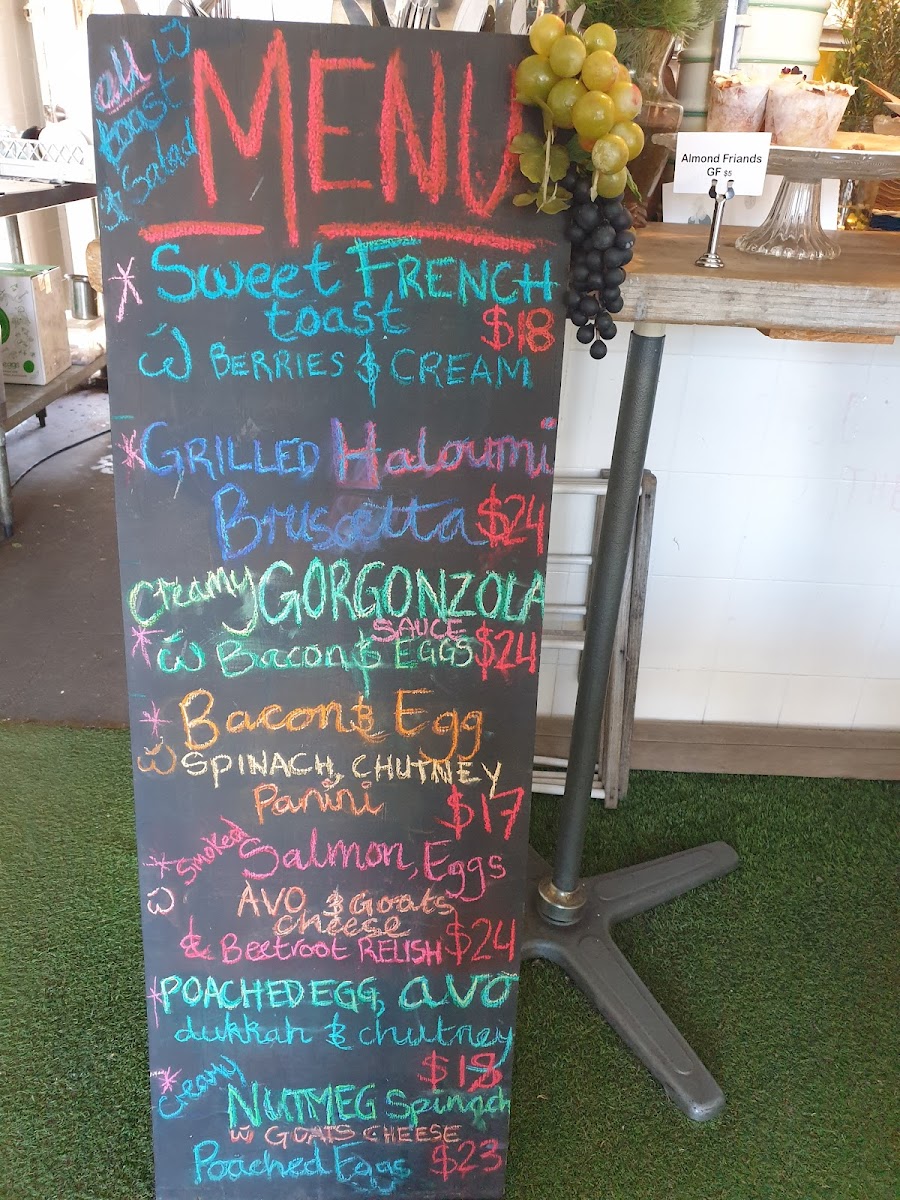 all w̃
toast
& Salad
MENU
* Sweet FRENCH
toast $18
w̃ BERRIES & CREAM
* GRILLED Haloumi
Bruscetta $24
Creamy GORGONZOLA
SAUCE
* w̃ Bacon & EGGS $24
* Bacon & Egg
w̃ SPINACH, CHUTNEY
Panini $17
* Smoked Salmon, Eggs
w̃ AVO & Goats
cheese
& Beetroot RELISH $24
* POACHED EGG, avo
dukkah & chutney
$18
* creamy
NUTMEG Spinach
w̃ GOATS CHEESE
Poached Eggs $23
Almond Friands
GF $5